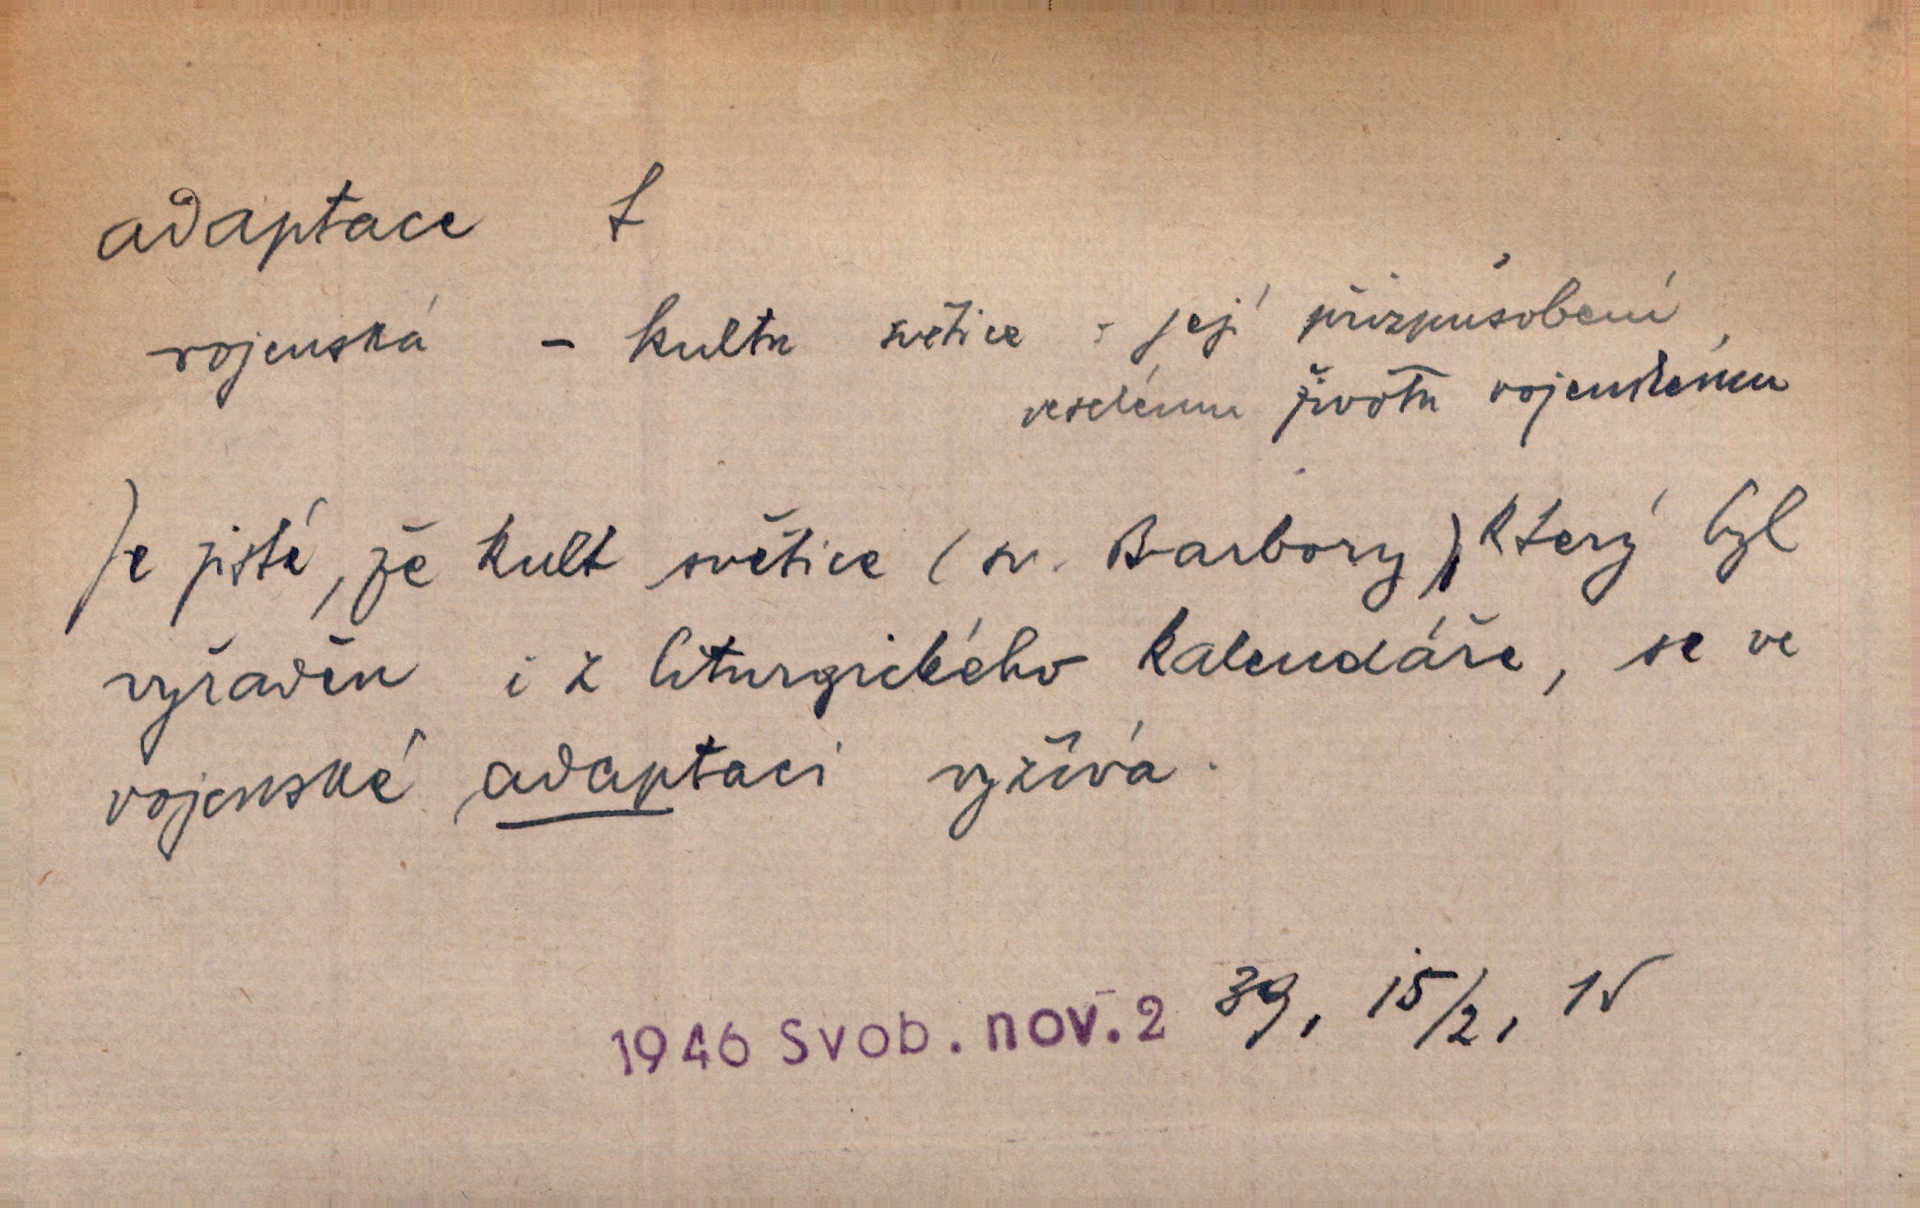 adaptace f
vojenská - kultu světice = její přizpůsobení
veselému životu vojenskému
Je jisté, že kult světice (sv. Barbory), který byl
vyřaděn i z liturgického kalendáře, se ve
vojenské adaptaci vyžívá.
1946 Svob. nov. 2 39, 15/2, 1